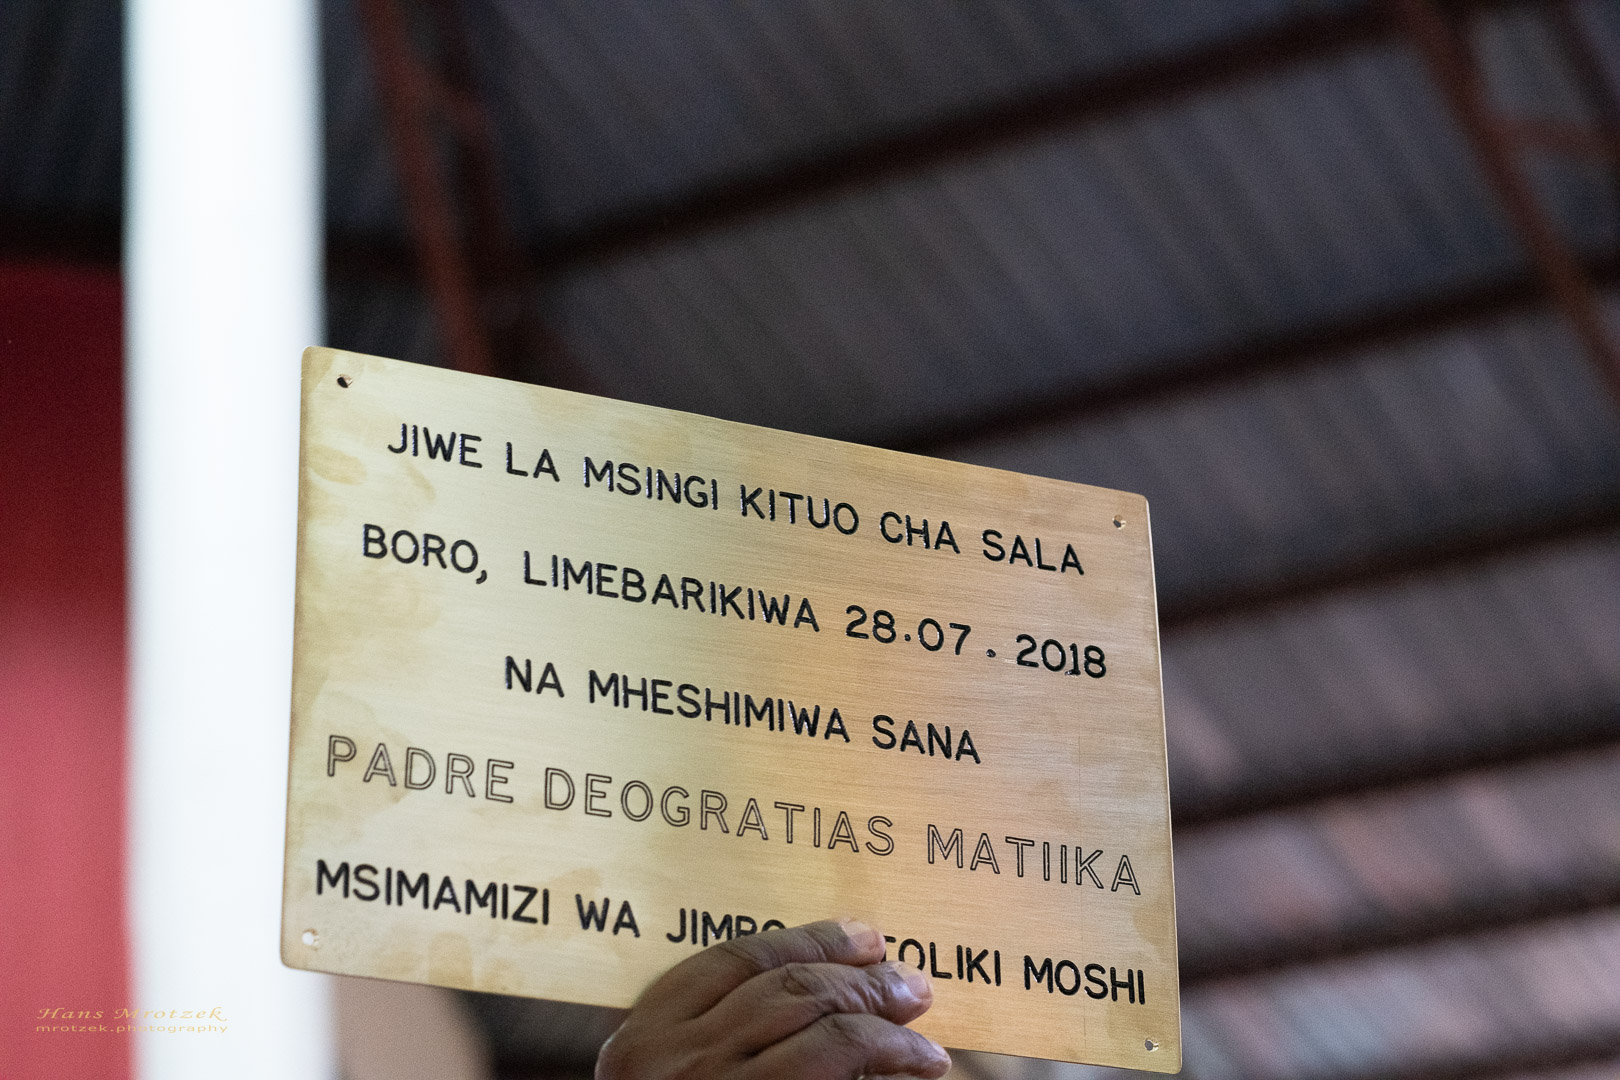 JIWE LA MSINGI KITUO CHA SALA
BORO, LIMEBARIKIWA 28.07.2018
NA MHESHIMIWA SANA
PADRE DEOGRATIAS MATIIKA
MSIMAMIZI WA MOSHI
Hans Mrotzek
mrotzek.photography